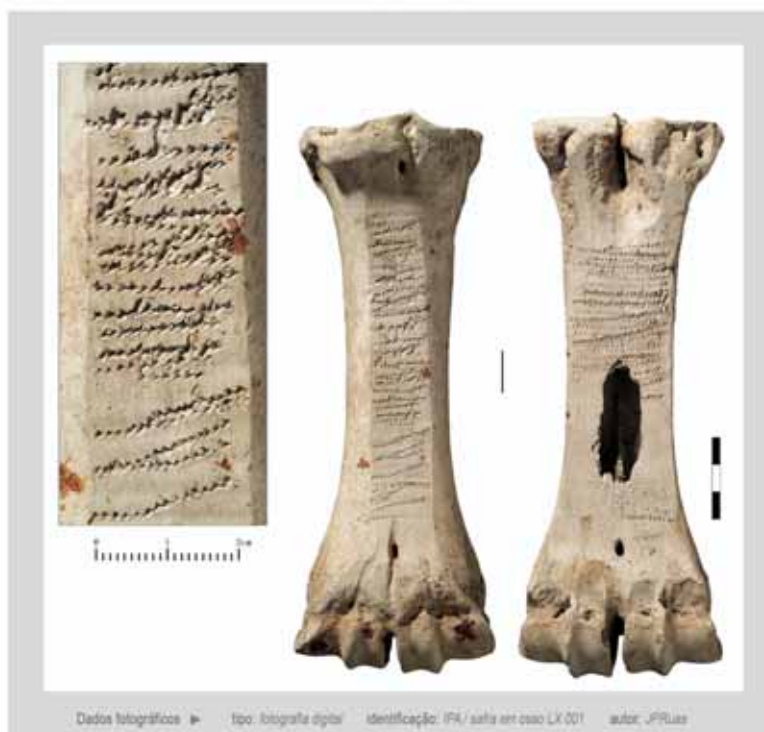 0 1 2cm
Dados fotográficos ► tipo: fotografia digital identificação: IPA / safra em osso LX 001 autor: JPRuas